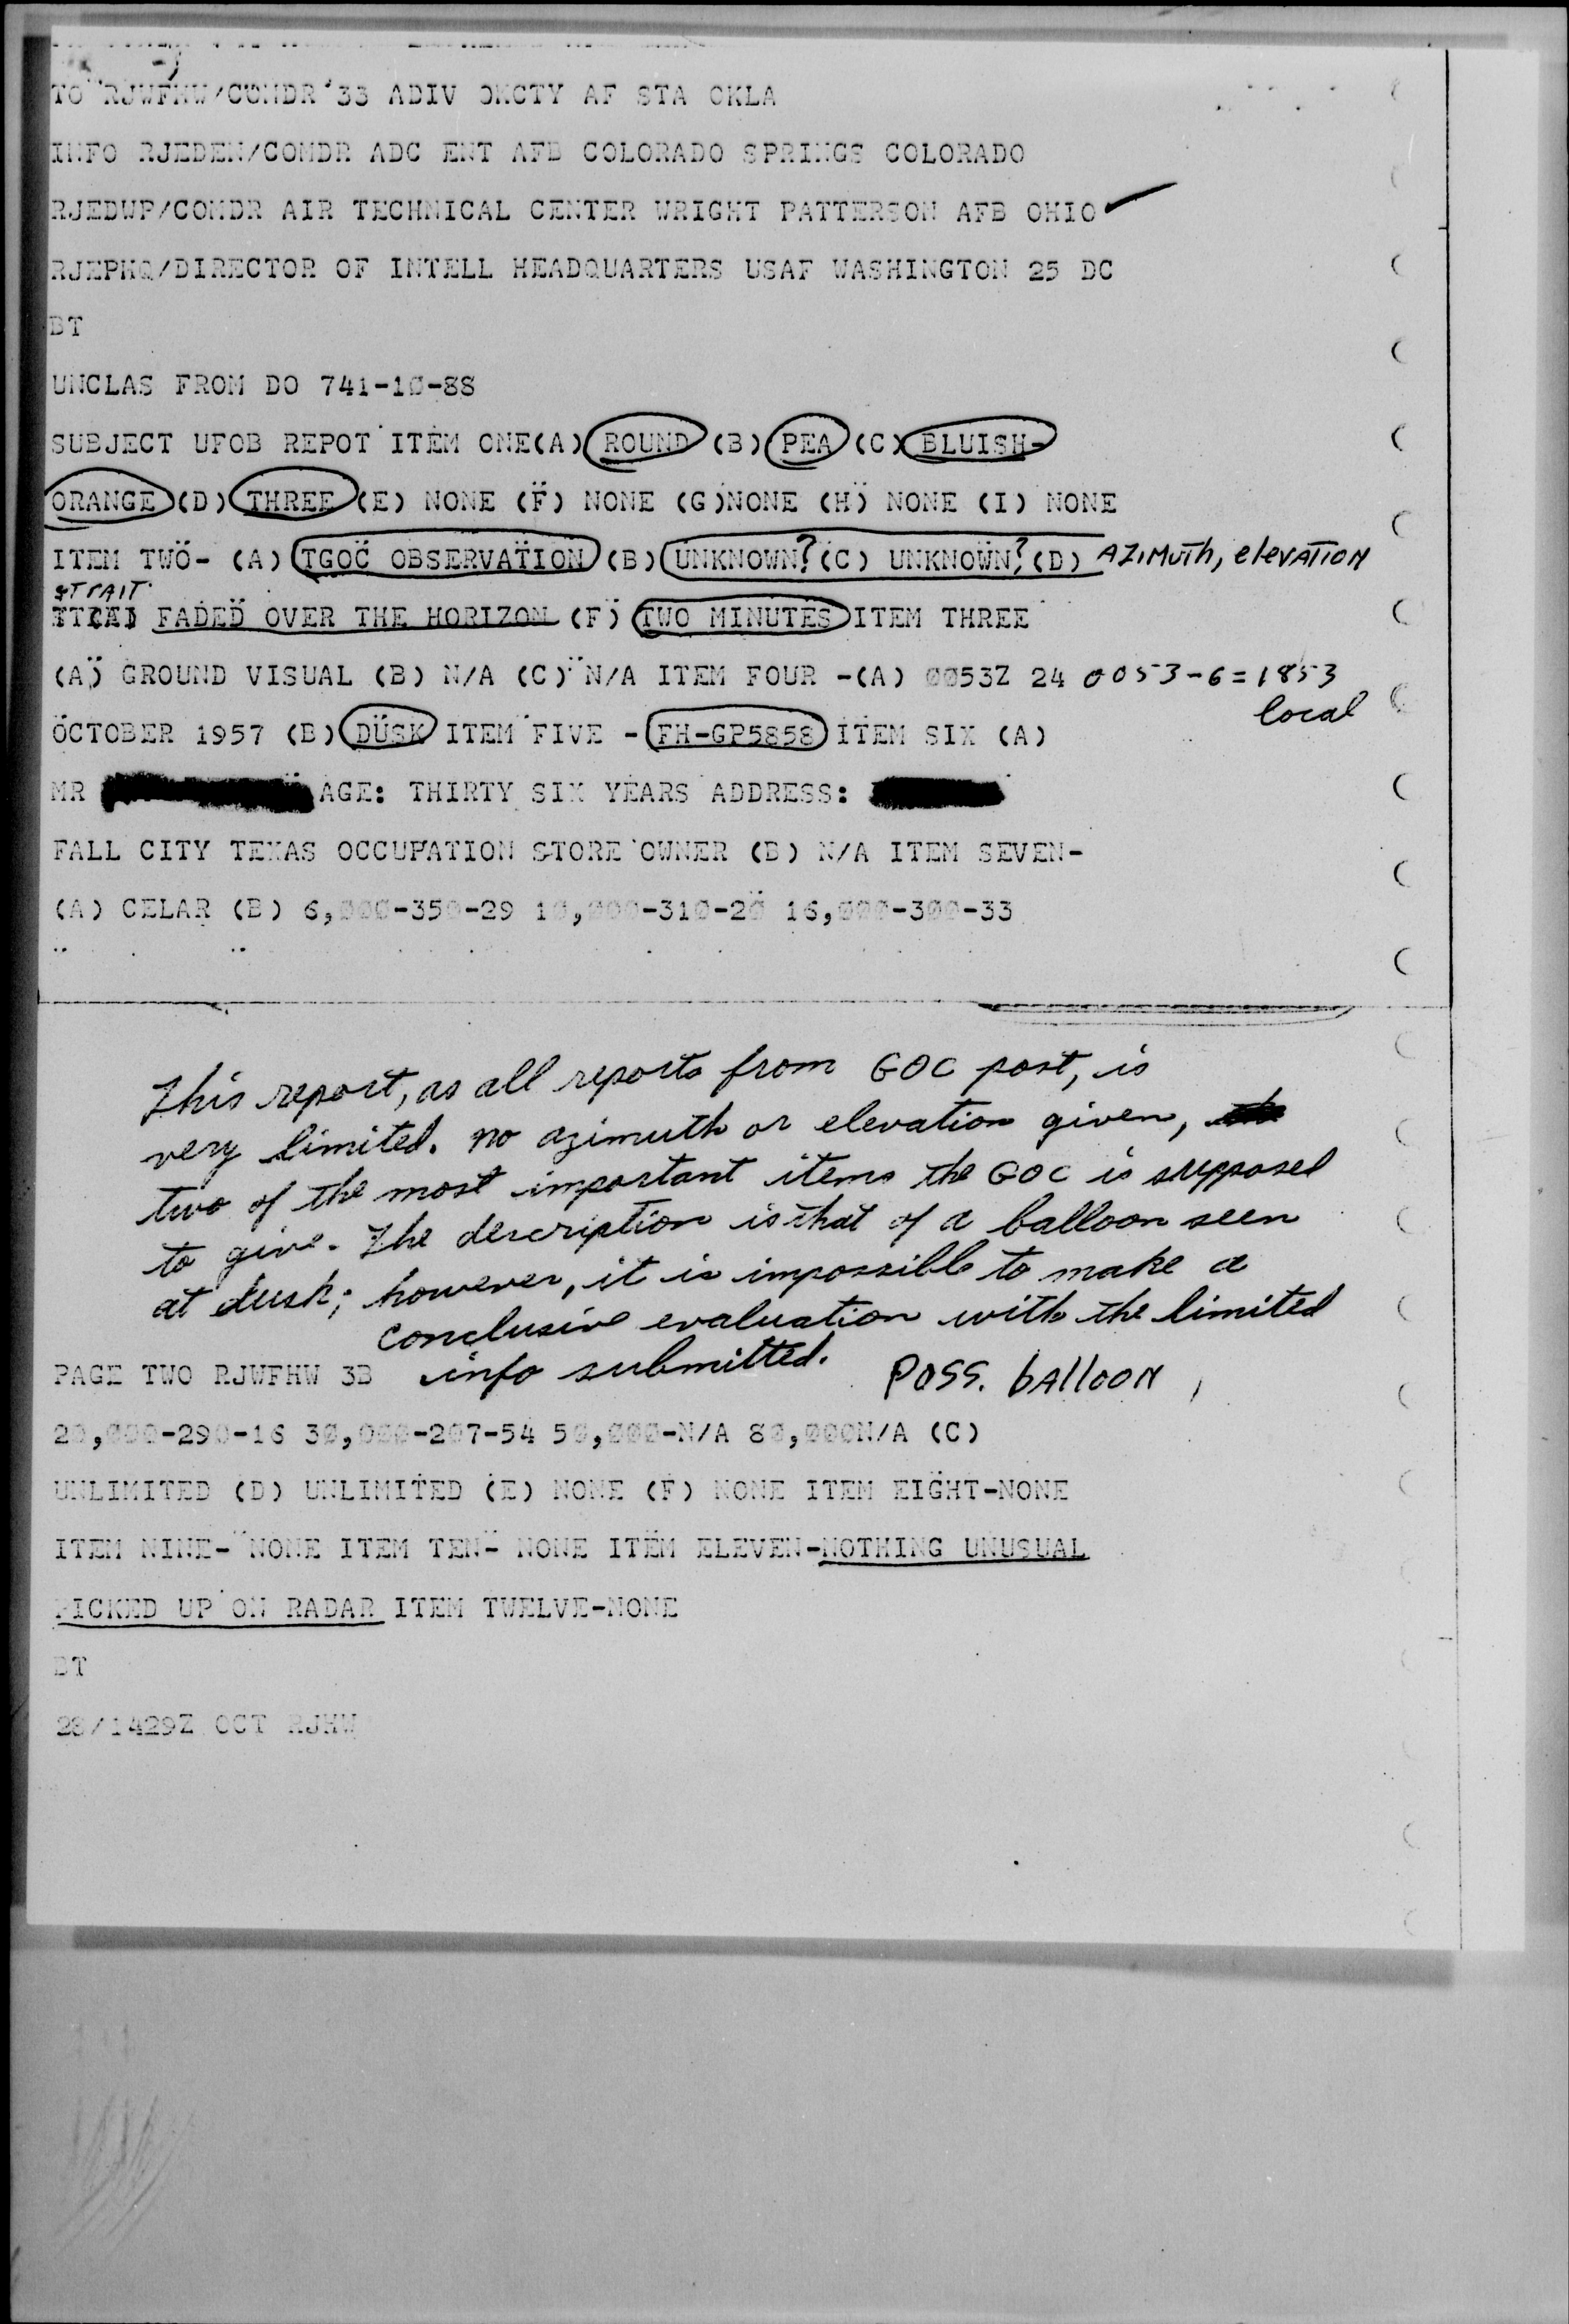 TO RJWFHW/COMDR 33 ADIV OKCTY AF STA OKLA
INFO RJEDEN/COMDR ADC ENT AFB COLORADO SPRINGS COLORADO
RJEDWP/COMDR AIR TECHNICAL CENTER WRIGHT PATTERSON AFB OHIO
RJEPHQ/DIRECTOR OF INTELL HEADQUARTERS USAF WASHINGTON 25 DC
BT
UNCLAS FROM DO 741-10-88
SUBJECT UFOB REPOT ITEM ONE(A) ROUND (B) PEA (C) BLUISH-
ORANGE (D) THREE (E) NONE (F) NONE (G)NONE (H) NONE (I) NONE
ITEM TWO- (A) TGOC OBSERVATION (B) UNKNOWN? (C) UNKNOWN? (D) AZIMUTH, elevATION
STRAIT
FADED OVER THE HORIZON (F) TWO MINUTES ITEM THREE
(A) GROUND VISUAL (B) N/A (C) N/A ITEM FOUR -(A) 0053Z 24 0053-6=1853
local
OCTOBER 1957 (B) DUSK ITEM FIVE - FH-GP5858 ITEM SIX (A)
MR AGE: THIRTY SIX YEARS ADDRESS:
FALL CITY TEXAS OCCUPATION STORE OWNER (B) N/A ITEM SEVEN-
(A) CELAR (B) 6,000-350-29 10,000-310-20 16,000-300-33
This report, as all reports from GOC post, is
very limited. No azimuth or elevation given,
two of the most important items the GOC is supposed
to give. The description is that of a balloon seen
at dusk; however, it is impossible to make a
conclusive evaluation with the limited
info submitted.
POSS. bAlloON
PAGE TWO RJWFHW 3B
20,000-290-16 30,000-207-54 50,000-N/A 80,000N/A (C)
UNLIMITED (D) UNLIMITED (E) NONE (F) NONE ITEM EIGHT-NONE
ITEM NINE- NONE ITEM TEN- NONE ITEM ELEVEN-NOTHING UNUSUAL
PICKED UP ON RADAR ITEM TWELVE-NONE
BT
28/1429Z OCT RJHW